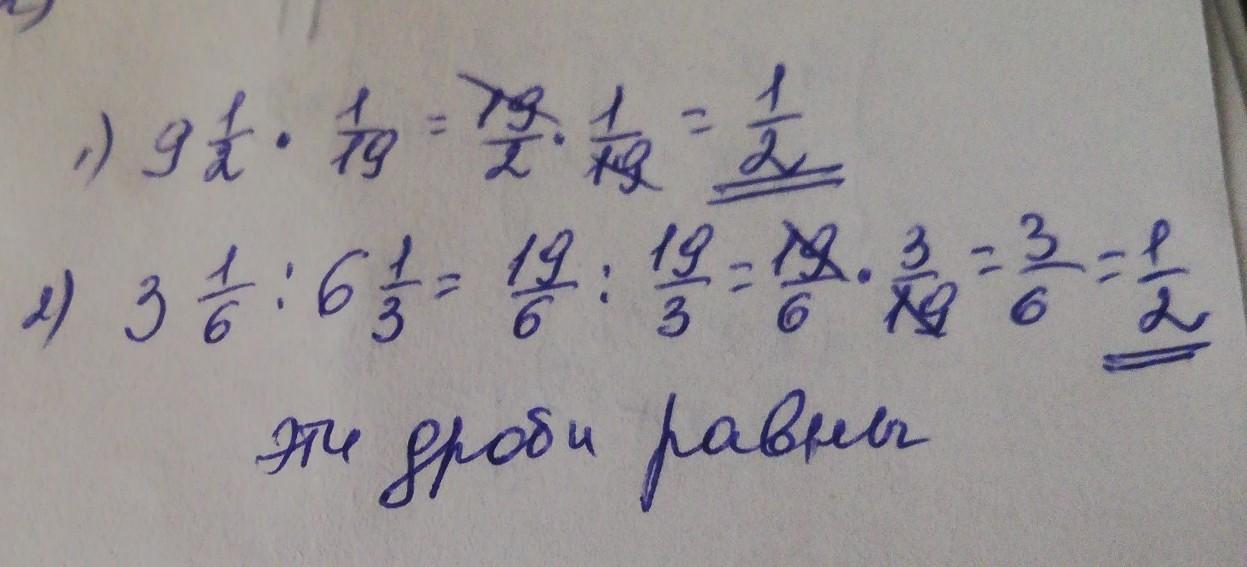 1) 9 1/2 · 1/19 = 19/2 · 1/19 = 1/2
2) 3 1/6 : 6 1/3 = 19/6 : 19/3 = 19/6 · 3/19 = 3/6 = 1/2
эти дроби равны